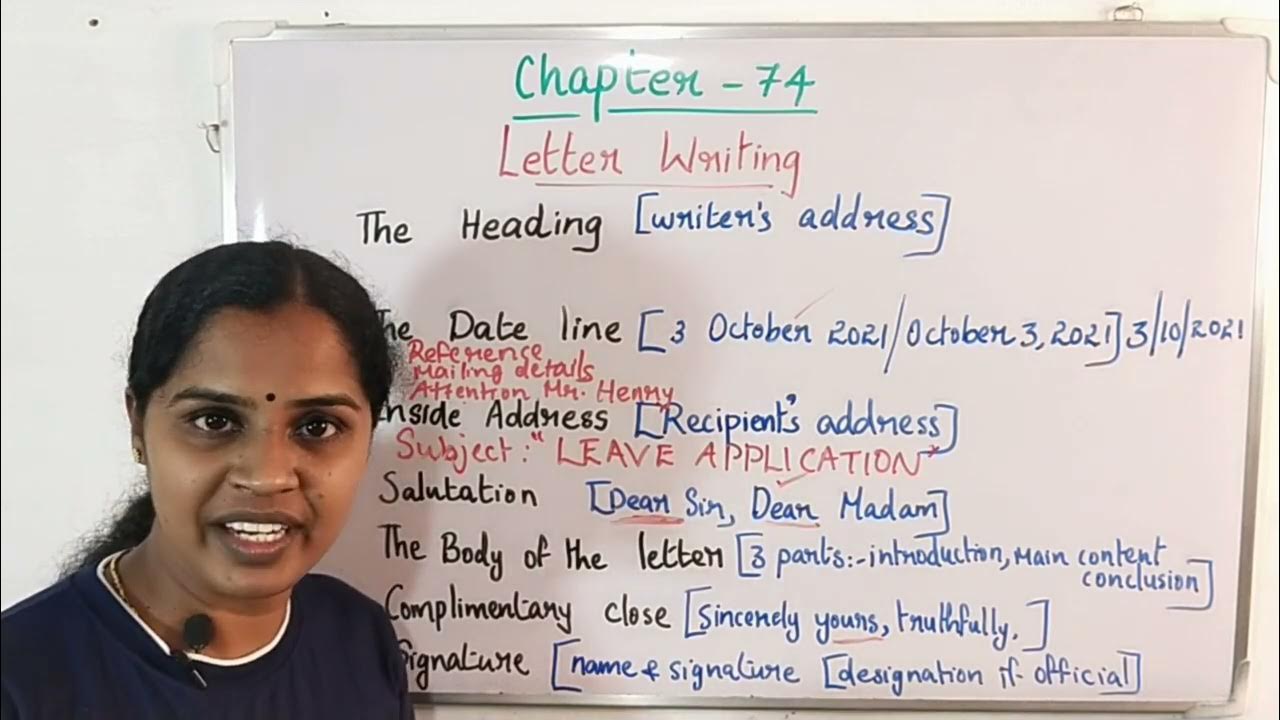 Chapter - 74
Letter Writing
The Heading [writer's address]
The Date line [3 October 2021/October 3, 2021] 3/10/2021
Reference
Mailing details
Attention Mr. Henry
Inside Address [Recipient's address]
Subject: "LEAVE APPLICATION"
Salutation [Dear Sir, Dear Madam]
The Body of the letter [3 parts:- introduction, Main content
conclusion]
Complimentary close [Sincerely yours, truthfully,]
Signature [name & signature [designation if official]